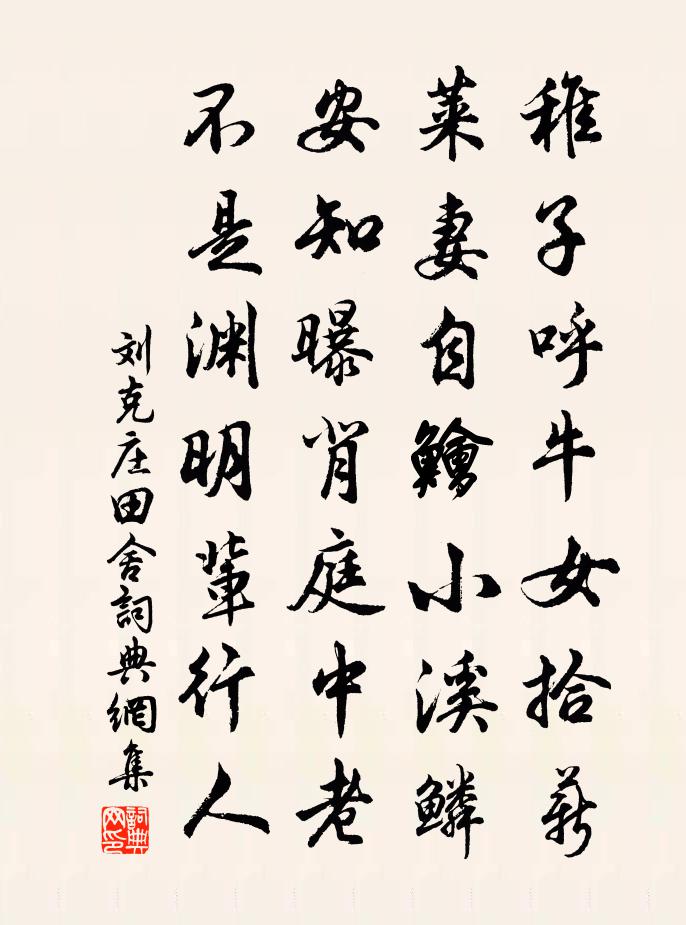 稚子呼牛女拾薪
萊妻自鱠小溪鱗
安知曝背庭中老
不是渊明輩行人
刘克庄田舍詞典網集
詞典網印